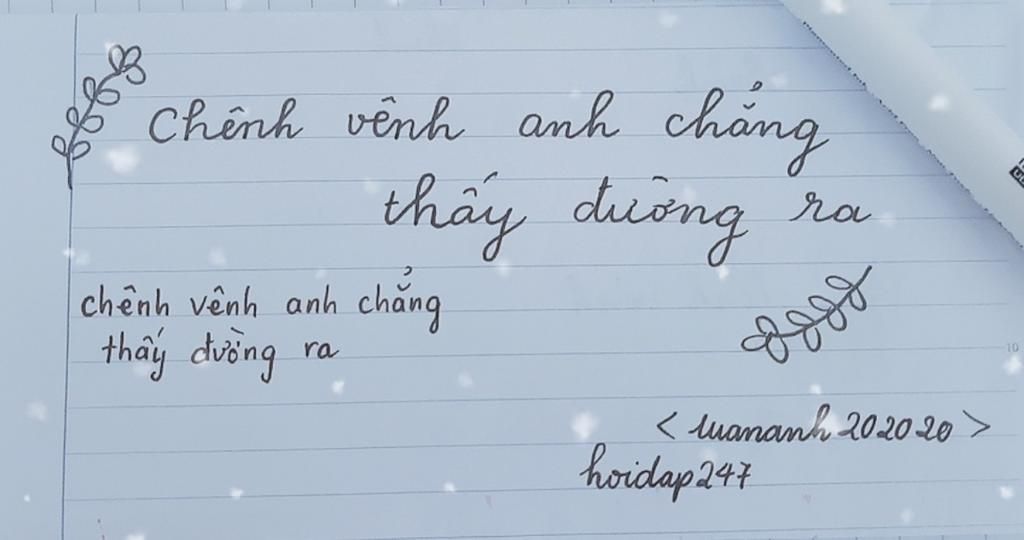 Chênh vênh anh chẳng
thấy đường ra
chênh vênh anh chẳng
thấy đường ra
< luananh 202020 >
hoidap247